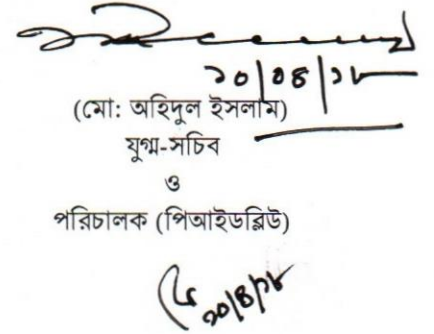 ১০/০৪/১৮
(মো: অহিদুল ইসলাম)
যুগ্ম-সচিব
ও
পরিচালক (পিআইডব্লিউ)
১০/৪/১৮